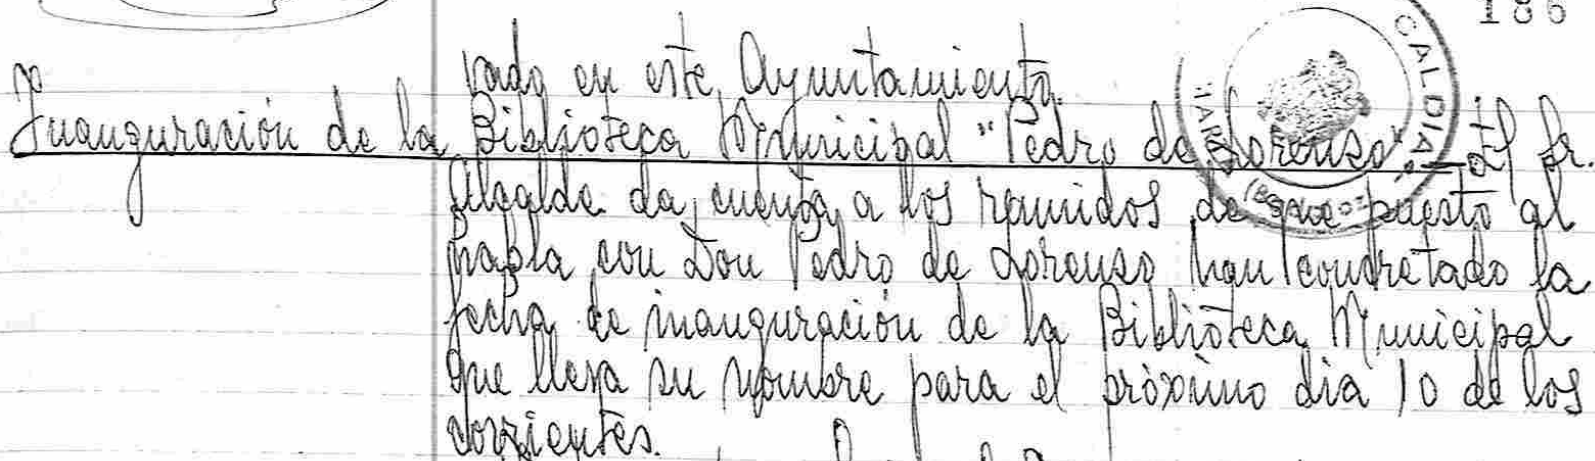 186
ALCALDIA
(BADAJOZ)
vado en este Ayuntamiento.
Inauguración de la Biblioteca Municipal "Pedro de Lorenzo".- El Sr.
Alcalde da cuenta a los reunidos de que puesto al
habla con Don Pedro de Lorenzo han concretado la
fecha de inauguración de la Biblioteca Municipal
que lleva su nombre para el próximo dia 10 de los
corrientes.